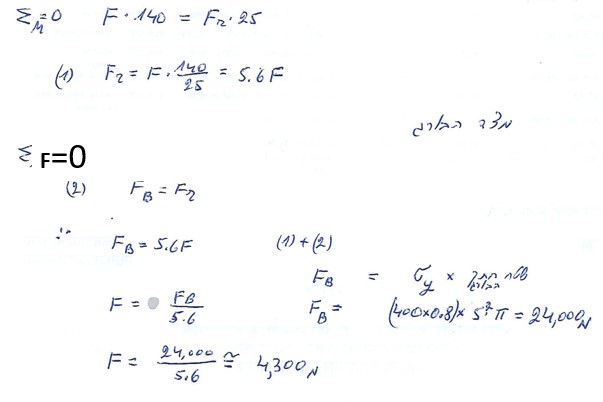 Σ_M=0 F·140 = F₂·25
(1) F₂ = F·140/25 = 5.6F
מצד הבורג
Σ F=0
(2) F_B = F₂
∴ F_B = 5.6F (1)+(2)
F_B = σ_y × שטח חתך הבורג
F = F_B/5.6 F_B = (400×0.8)×5²π = 24,000 N
F = 24,000/5.6 ≅ 4,300 N